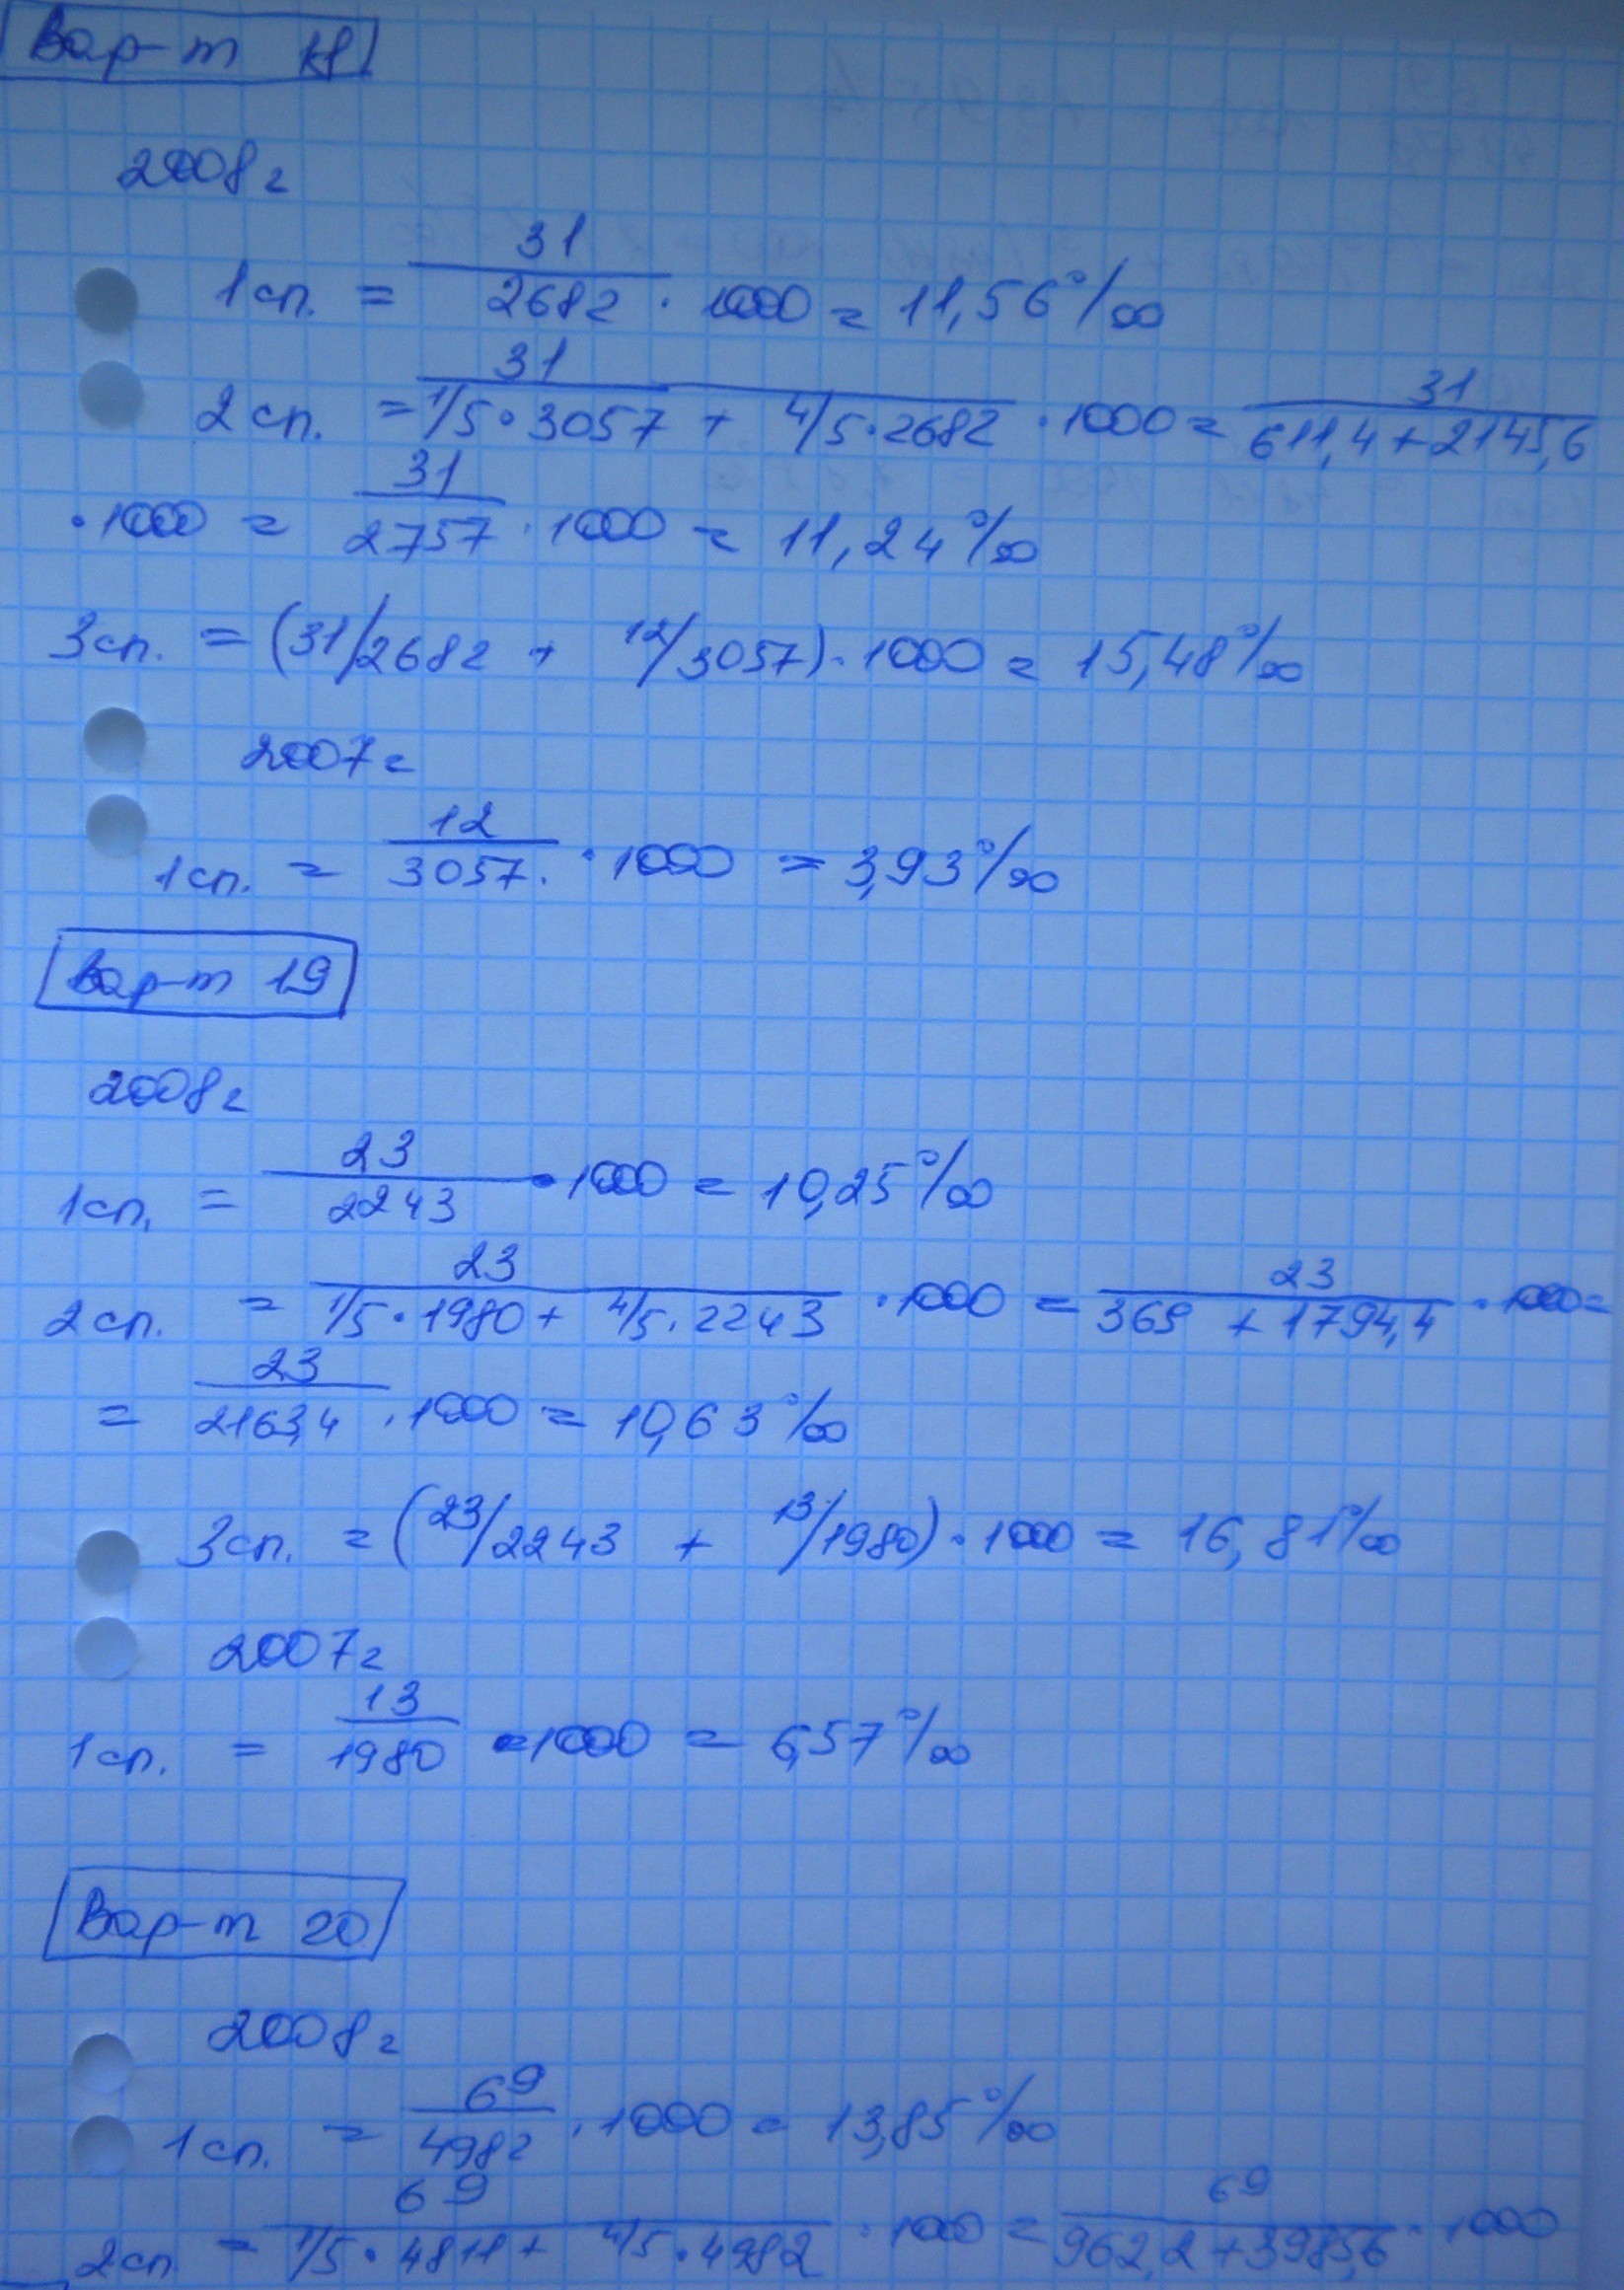 Вар-т 18
2008г
1сп. = 31/2682 · 1000 = 11,56‰
2сп. = 31/(1/5·3057 + 4/5·2682) · 1000 = 31/(611,4+2145,6)
·1000 = 31/2757 · 1000 = 11,24‰
3сп. = (31/2682 + 12/3057)·1000 = 15,48‰
2007г
1сп. = 12/3057 · 1000 = 3,93‰
Вар-т 19
2008г
1сп. = 23/2243 · 1000 = 10,25‰
2сп. = 23/(1/5·1980 + 4/5·2243) · 1000 = 23/(369 + 1794,4) · 1000 =
= 23/2163,4 · 1000 = 10,63‰
3сп. = (23/2243 + 13/1980)·1000 = 16,81‰
2007г
1сп. = 13/1980 · 1000 = 6,57‰
Вар-т 20
2008г
1сп. = 69/4982 · 1000 = 13,85‰
2сп = 69/(1/5·4811 + 4/5·4982) · 1000 = 69/(962,2+3985,6) · 1000